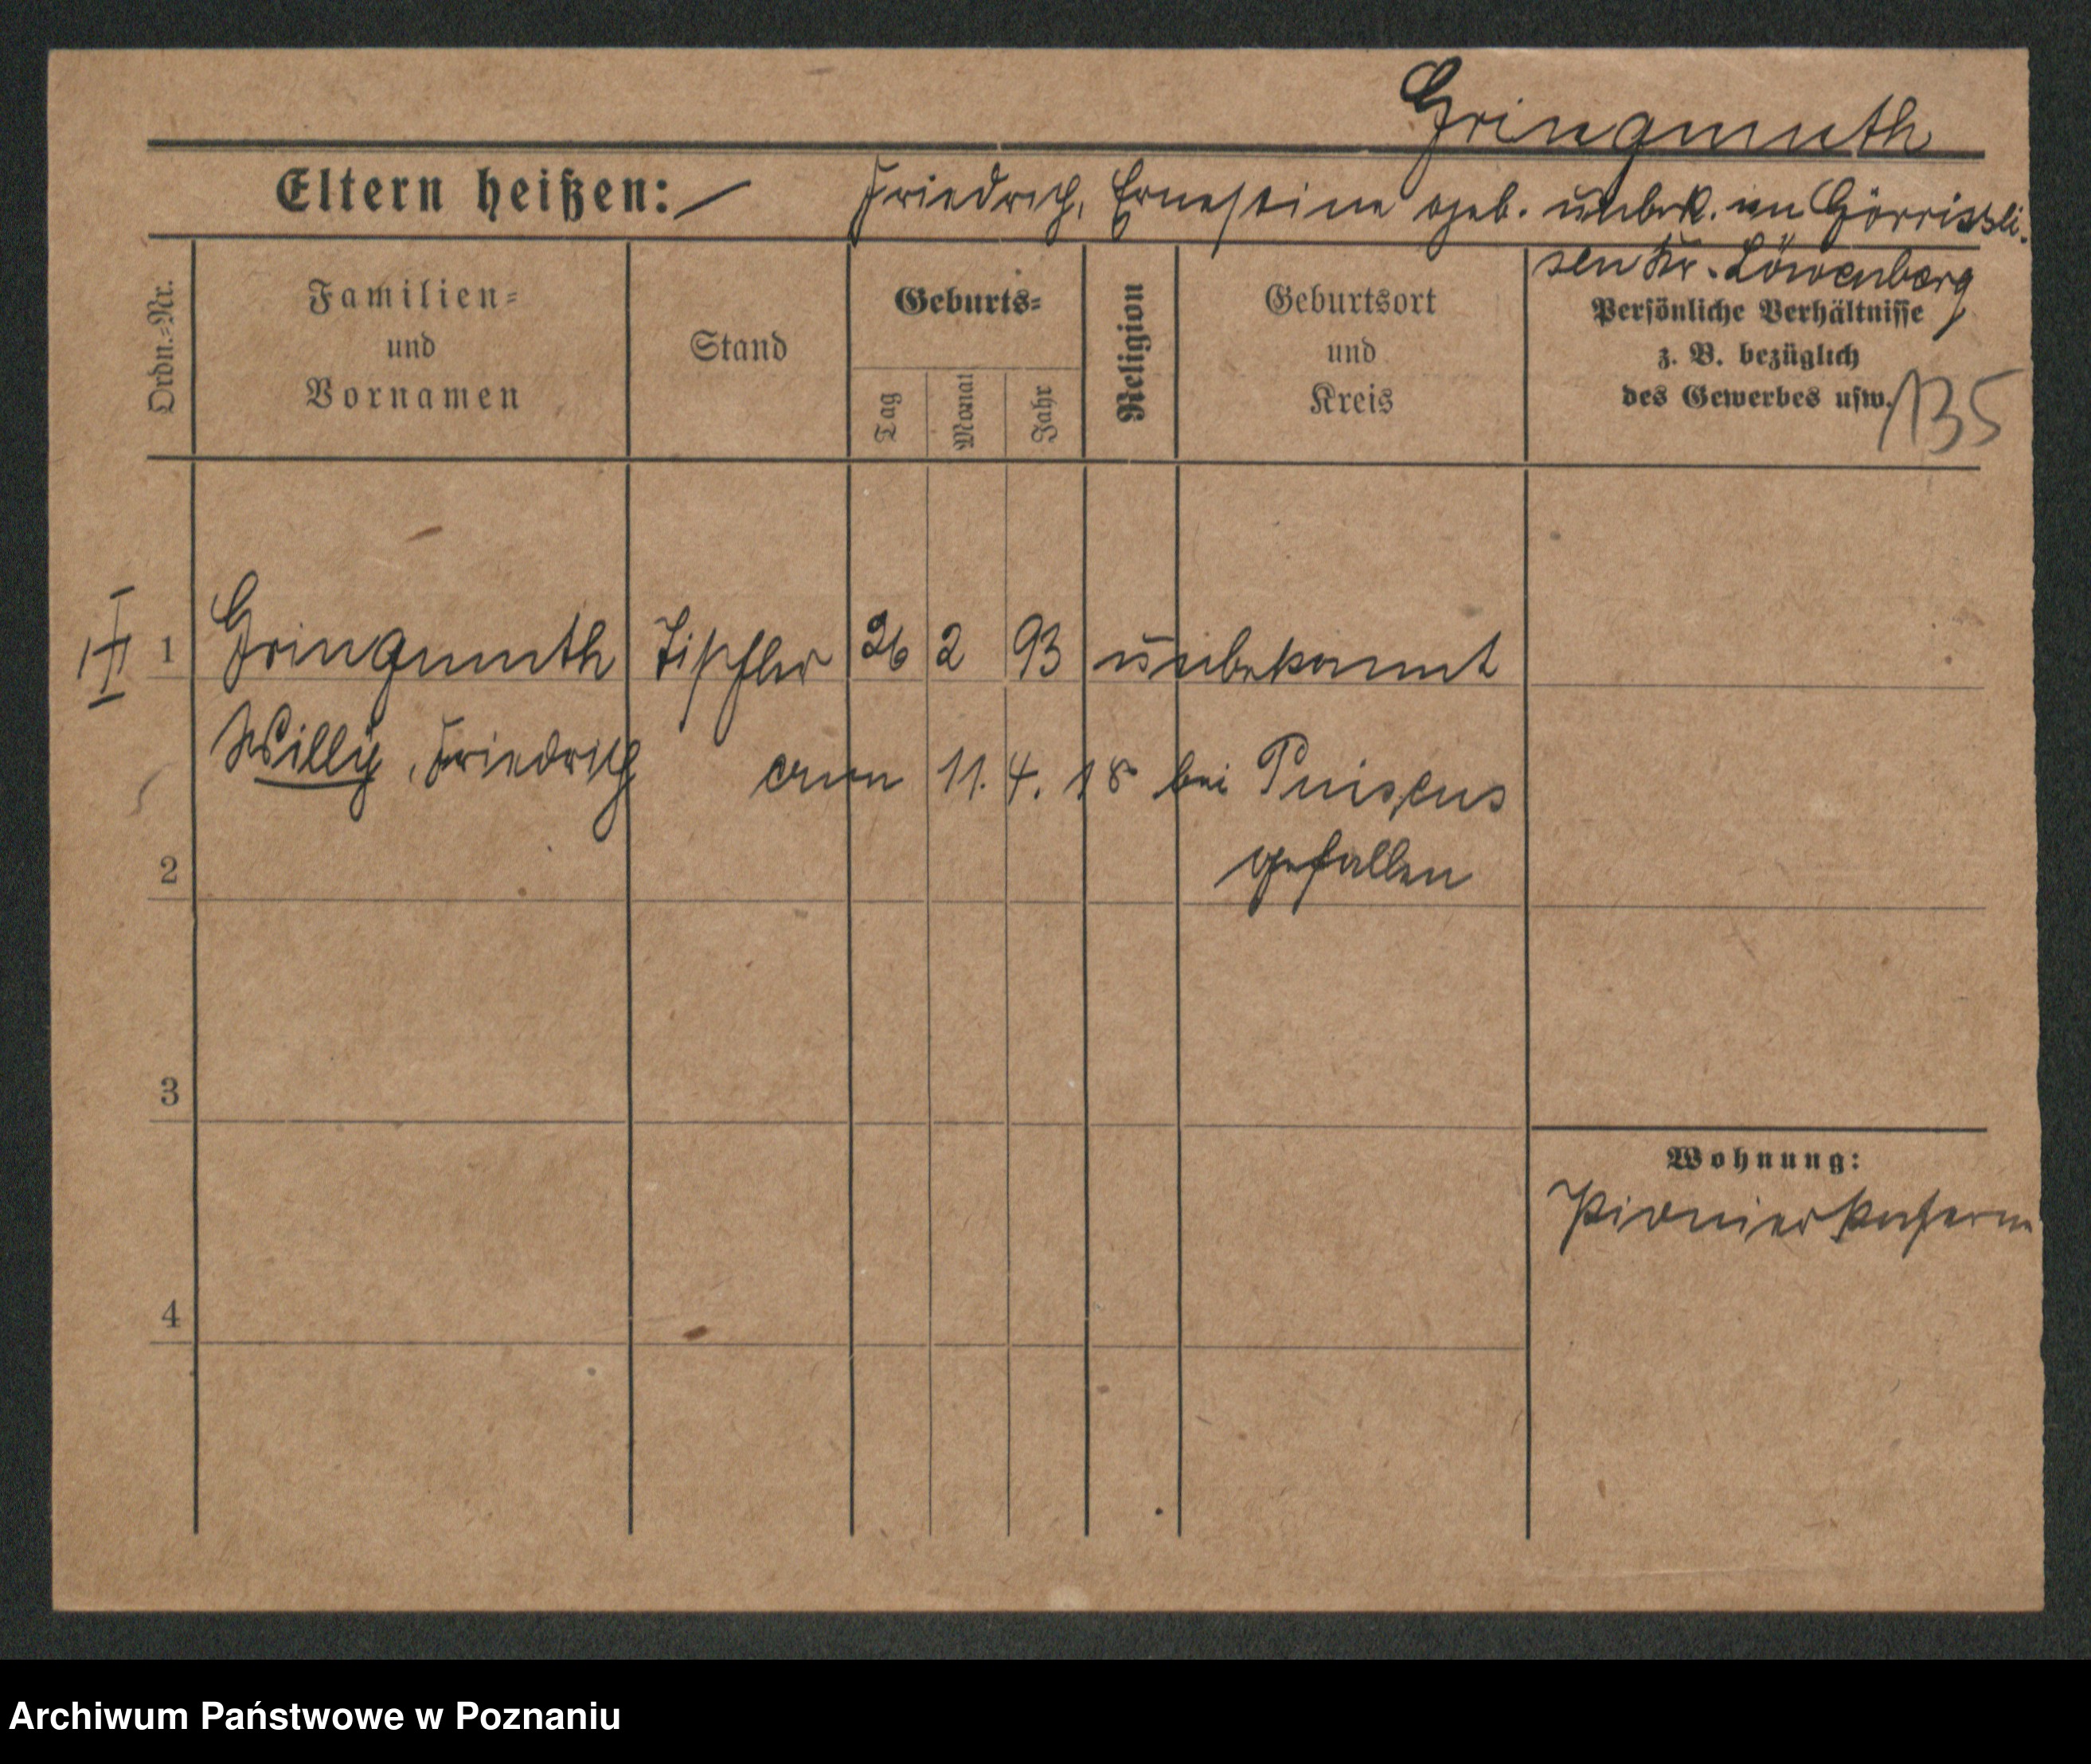 Gringmuth
Eltern heißen: Friedrich, Ernestine geb. unbek. in Görrissei-
sen Kr. Löwenberg
Ordn.-Nr.
Familien-
und
Vornamen
Stand
Geburts-
Tag
Monat
Jahr
Religion
Geburtsort
und
Kreis
Persönliche Verhältnisse
z. B. bezüglich
des Gewerbes usw.
135
1 Gringmuth Tischler 26 2 93 unbekannt
Willy, Friedrich am 11. 4. 18 bei
gefallen
2
3
4
Wohnung:
Pionierkaserne
Archiwum Państwowe w Poznaniu